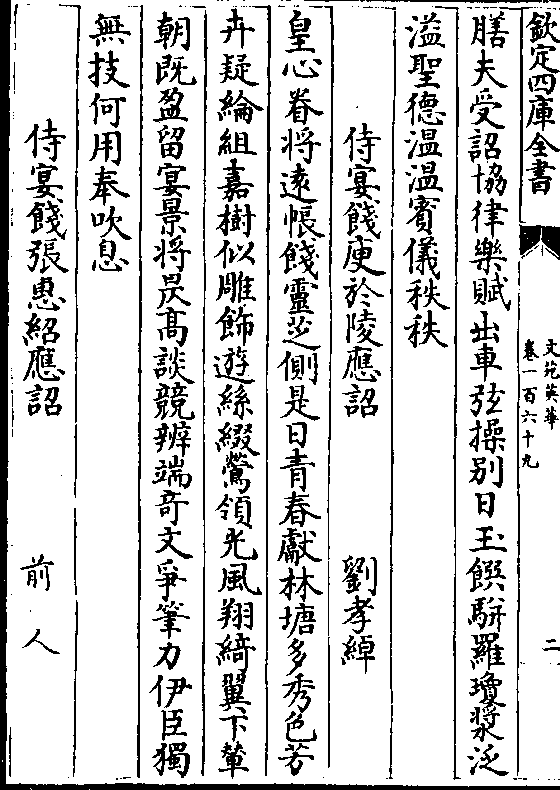 欽定四庫全書
文苑英華
卷一百六十九
二
膳夫受詔協律樂賦出車弦操别日玉饌駢羅瓊漿泛
溢聖德温温賓儀秩秩
侍宴餞庾於陵應詔 劉孝綽
皇心眷將遠帳餞靈芝側是日青春獻林塘多秀色芳
卉疑綸組嘉樹似雕飾遊絲綴鶯領光風翔綺翼下輦
朝既盈留宴景將昃髙談競辨端奇文爭筆力伊臣獨
無技何用奉吹息
侍宴餞張惠紹應詔 前人